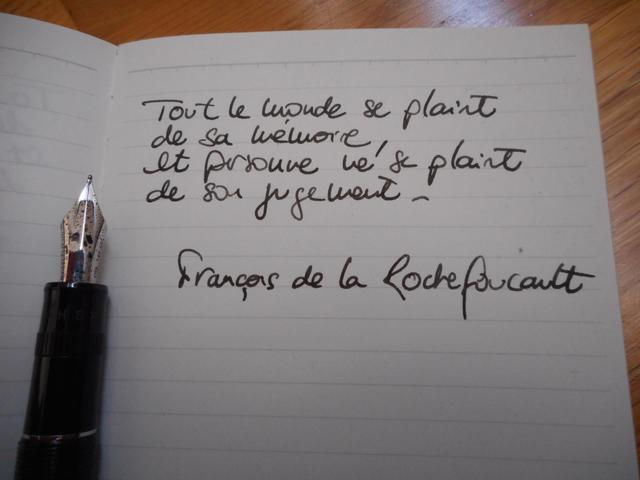 Tout le monde se plaint
de sa mémoire,
et personne ne se plaint
de son jugement_
François de la Rochefoucault